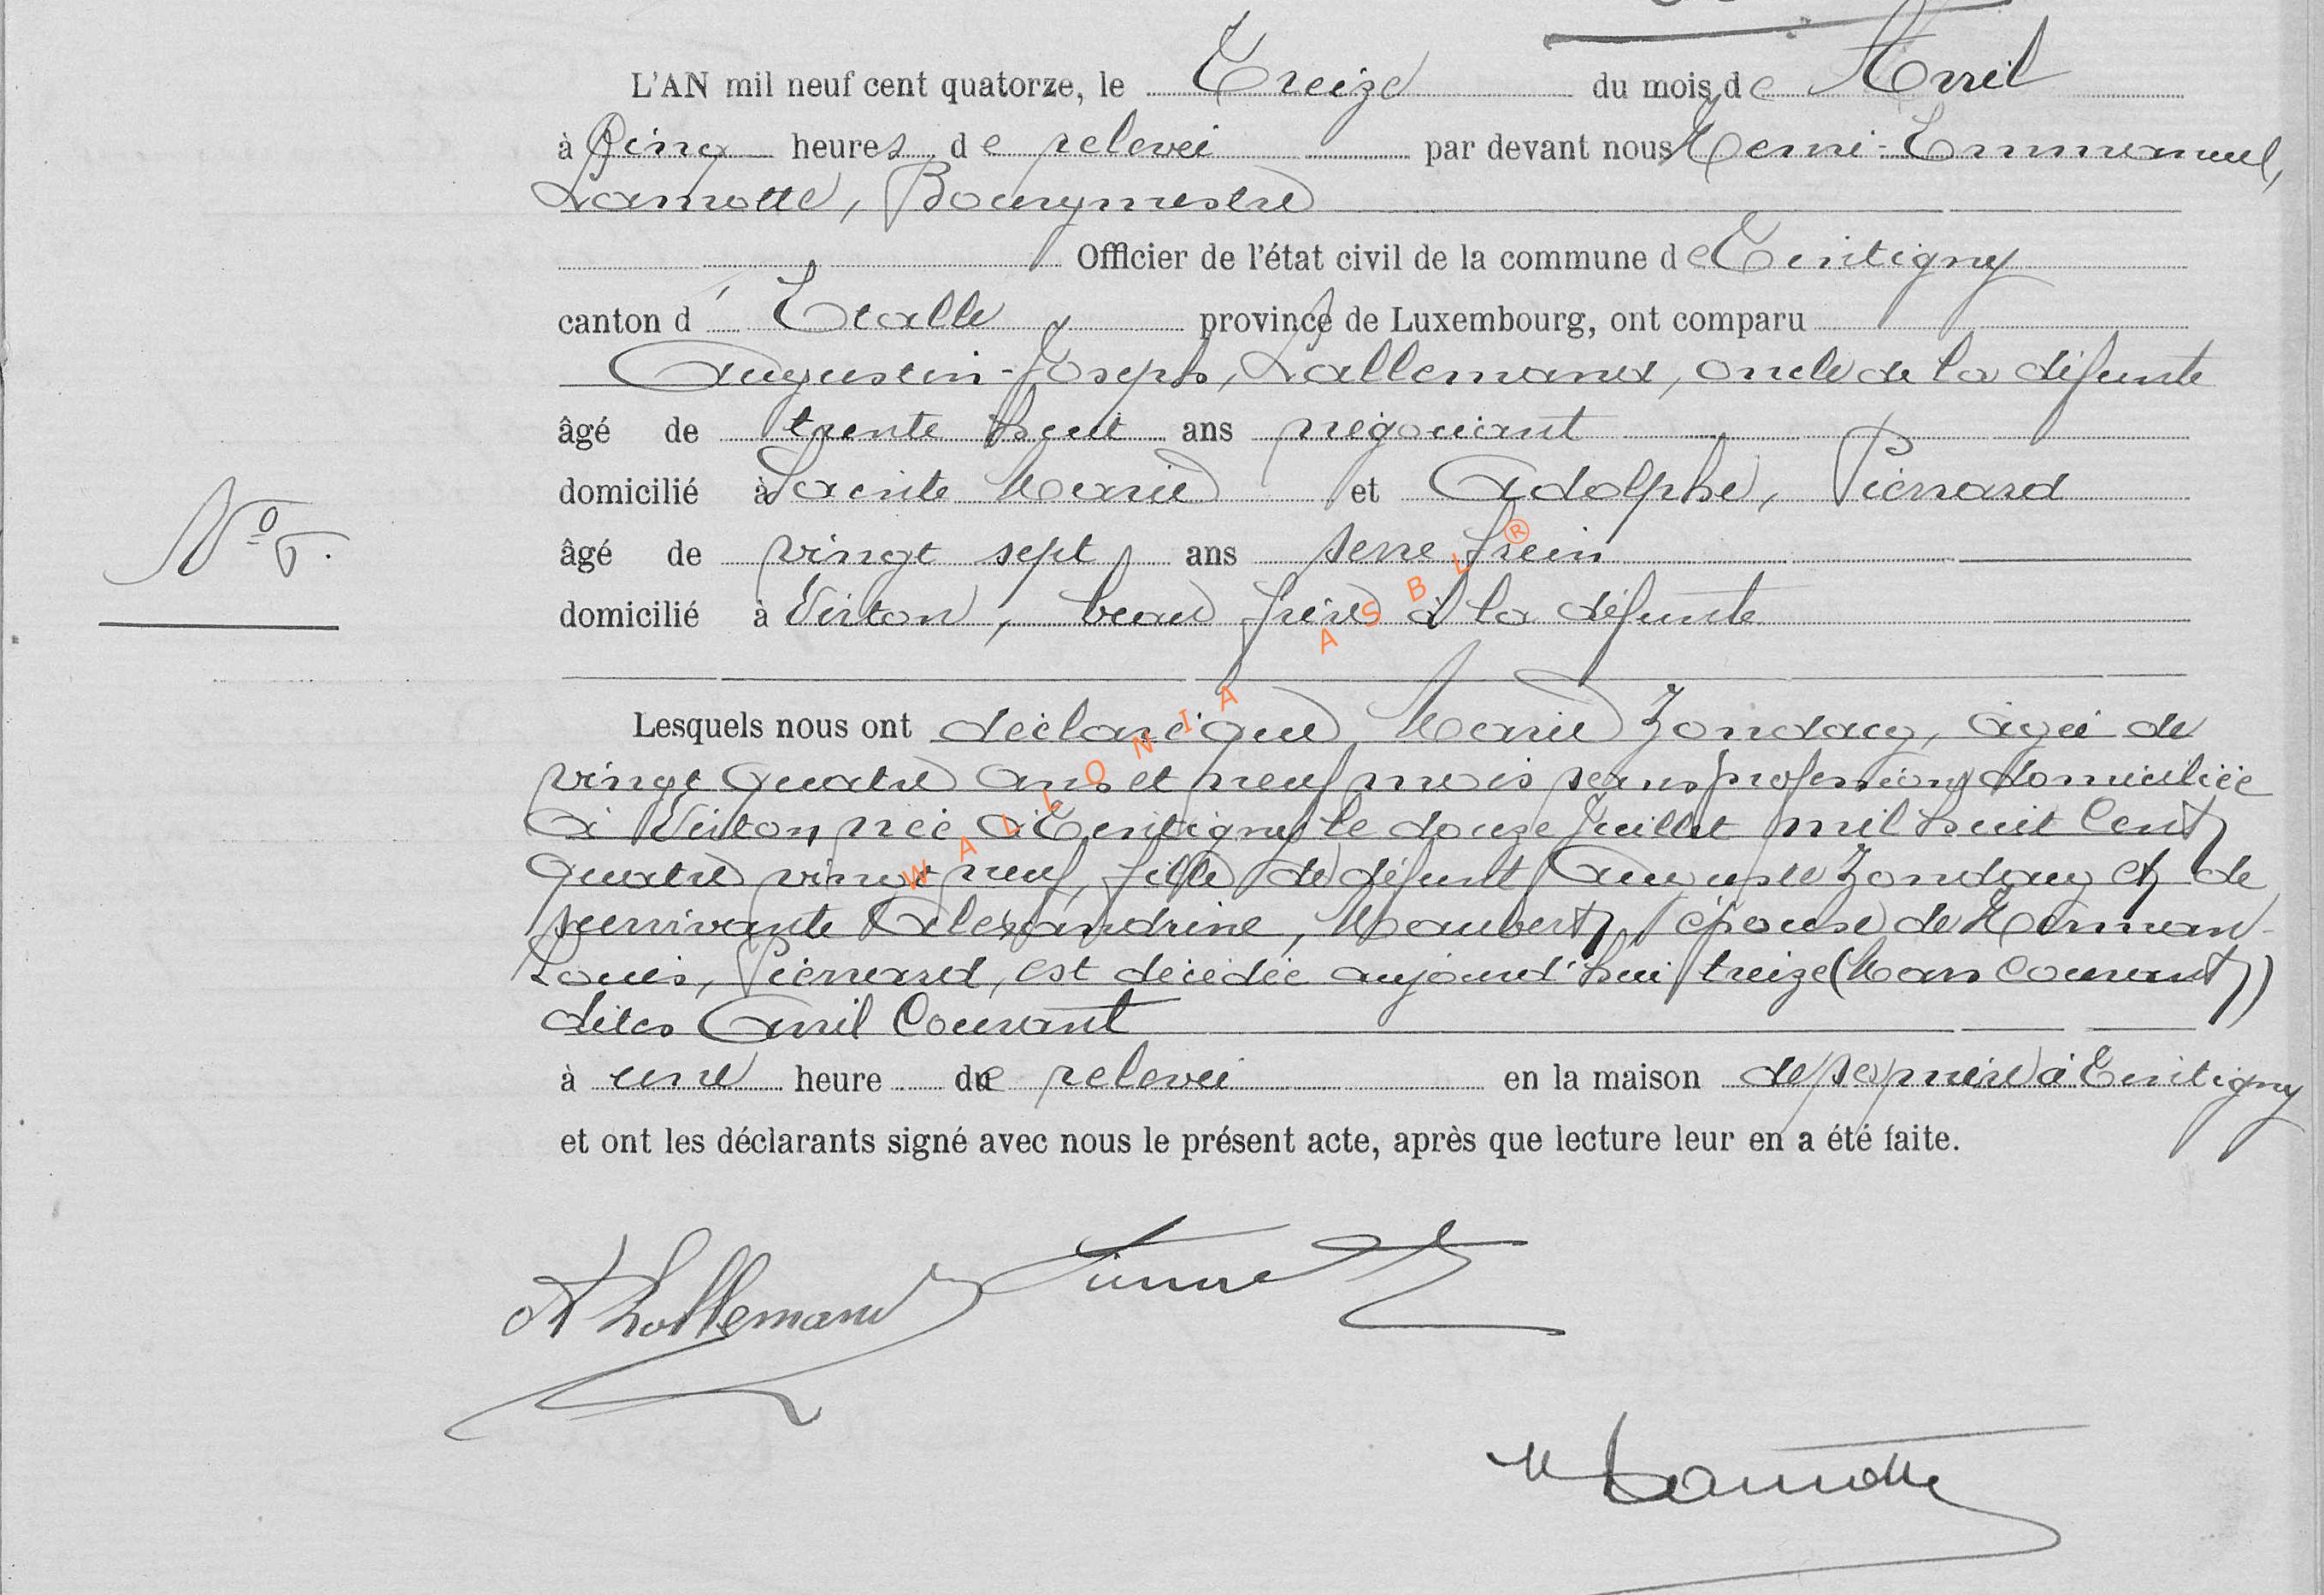 L'AN mil neuf cent quatorze, le Treize du mois de Avril
à Cinq heures de relevée par devant nous Henri-Emmanuel,
Lamotte, Bourgmestre
Officier de l'état civil de la commune de Tintigny
canton d' Etalle province de Luxembourg, ont comparu
Augustin-Joseph, Lallemand, oncle de la défunte
âgé de trente huit ans négociant
domicilié à Sainte Marie et Adolphe, Piérrard
N° 5.
âgé de vingt sept ans serre frein
domicilié à Virton, beau frère à la défunte
Lesquels nous ont déclaré que Marie Zondacq, âgée de
vingt quatre ans et neuf mois sans profession domiciliée
à Virton, née à Tintigny le douze Juillet mil huit Cent
quatre vingt neuf, fille de défunt Auguste Zondacq et de
survivante Alexandrine, Maubert, épouse de Herman-
Louis, Piérrard, est décédée aujourd'hui treize (Mars Courant)
dites Avril Courant
à une heure de relevée en la maison de sa mère à Tintigny
et ont les déclarants signé avec nous le présent acte, après que lecture leur en a été faite.
A Lallemand
H Lamotte
WALLONIA ASBL ®